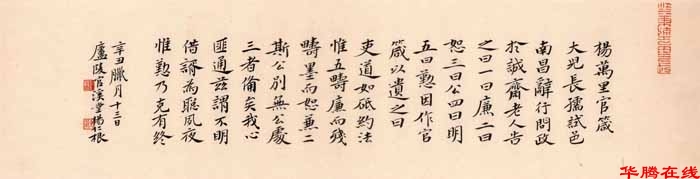 楊萬里官箴
大兒長孺試邑
南昌辭行問政
於誠齋老人告
之曰一曰廉二曰
恕三曰公四曰明
五曰勤因作官
箴以遺之曰
吏道如砥約法
惟五疇廉而殘
疇墨而恕兼二
斯公別無公處
三者備矣我心
匪通茲謂不明
借諝為聰夙夜
惟勤乃克有終
辛丑臘月十三日
廬陵官溪堂楊仁根
华腾在线